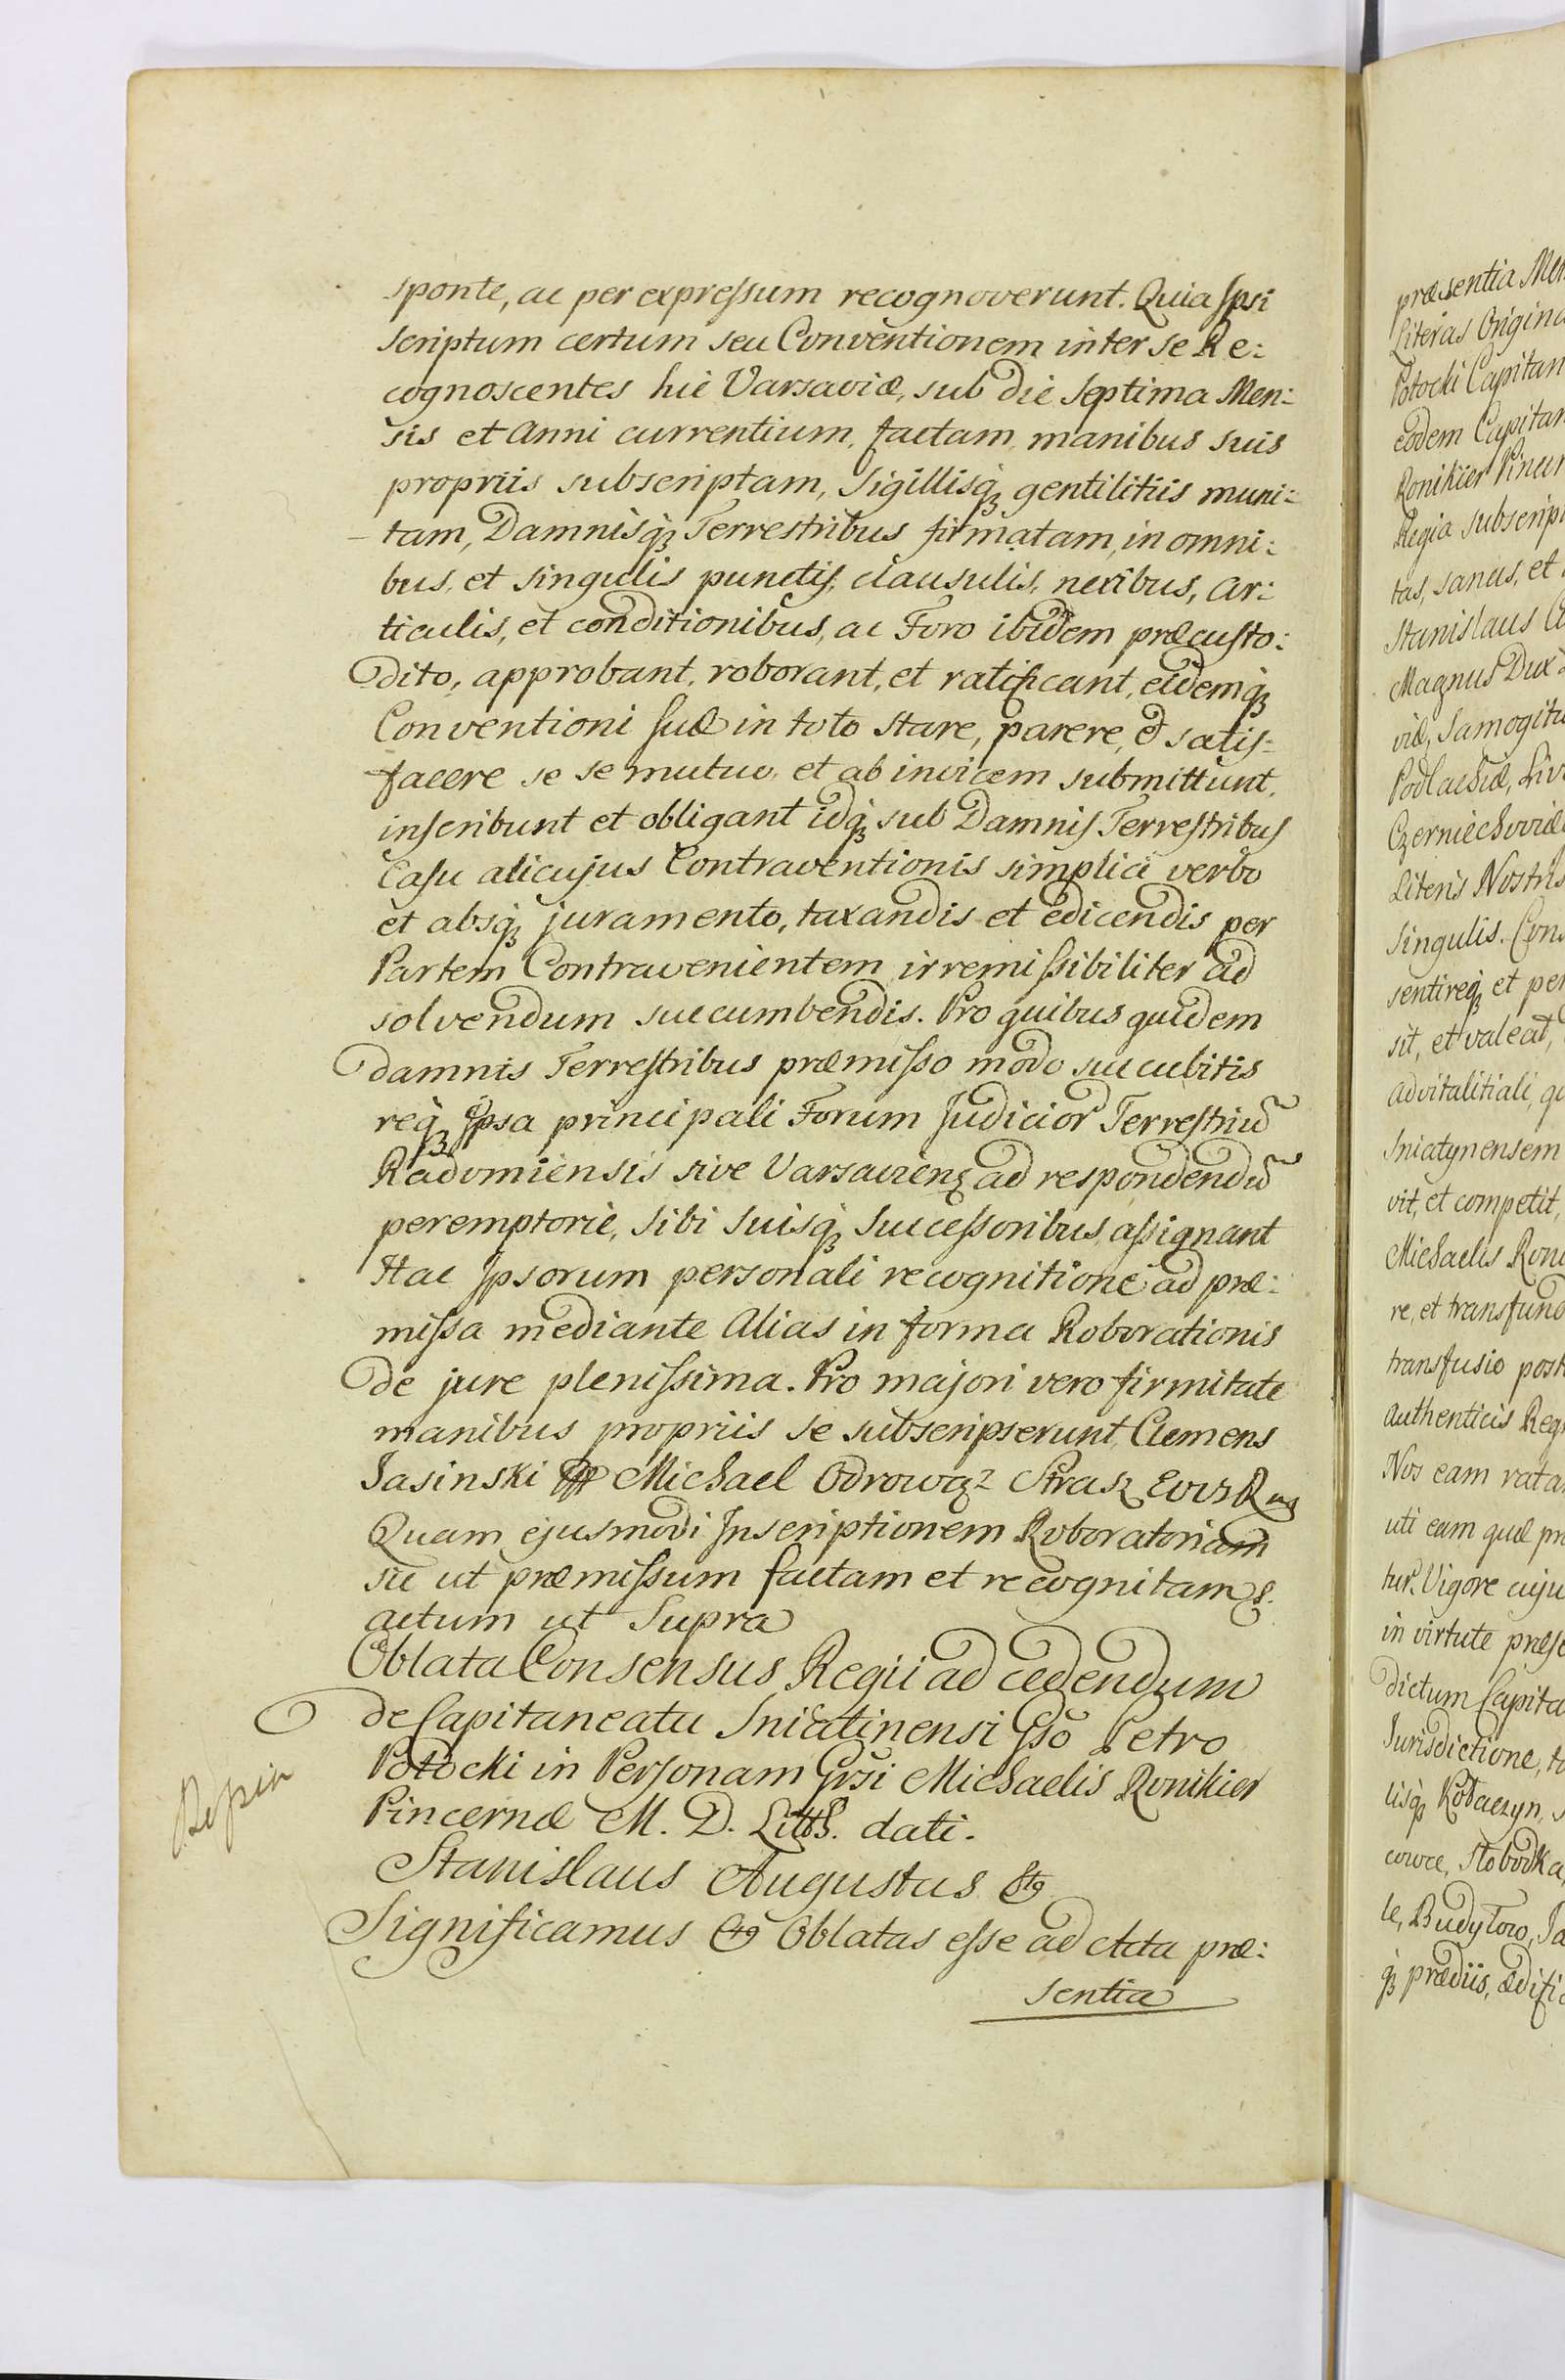 sponte, ac per expreſsum recognoverunt. Quia Ipsi
scriptum certum seu Conventionem inter se Re:
cognoscentes hic Varsaviæ, sub die Septima Men:
sis et Anni currentium, factam, manibus suis
propriis subscriptam, Sigillisq; gentilitiis muni:
tam, Damnisq; Terrestribus firmatam, in omni:
bus, et singulis punctis, clausulis, nexibus, Ar:
ticulis, et conditionibus, ac Foro ibidem præcuſto:
dito, approbant, roborant, et ratificant, eidemq;
Conventioni suæ in toto stare, parere, & satis:
facere se se mutuo, et ab invicem submittunt,
inſcribunt et obligant idq; sub Damnis Terreſtribus
Caſu alicujus Contraventionis simplici verbo
et absq; juramento, taxandis et edicendis per
Partem Contravenientem irremiſsibiliter ad
solvendum succumbendis. Pro quibus quidem
damnis Terreſtribus præmiſso modo succubitis
req; Ipsa principali Forum Judicior Terreſtriũ
Radomiensis sive Varsavienẓ ad respondendũ
peremptorie, sibi suisq; Succeſsoribus, aſsignant
Hac Ipsorum personali recognitione ad præ:
miſsa mediante Alias in forma Roborationis
de jure pleniſsima. Pro majori vero firmitate
manibus propriis se subscripserunt, Clemens
Jasinski Michael Odrowąz Straſz
Quam ejusmodi Inscriptionem Roboratoriam
sic ut præmiſsum factam et recognitam &.
actum ut Supra
Oblata Consensus Regii ad cedendum
de Capitaneatu Sniatinensi Gſso Petro
Potocki in Perſonam Grsi Michaelis Ronikier
Pincernæ M. D. Litth. dati.
Stanislaus Augustus &
Significamus & Oblatas eſse ad Acta præ:
sentia
præsentia Men
Literas Origina
Potocki Capitan
eodem Capitan
Ronikier Pincer
Regia subscrip
tas, sanas, et
Stanislaus
Magnus Dux
viæ, Samogitiæ
Podlachiæ, Liv
Czerniechoviæ
Literis Nostris
Singulis. Con
sentireq; et per
sit, et valeat,
advitalitiali, qu
Sniatynensem
vit, et competit,
Michaelis Roni
re, et transfund
transfusio post
authenticis Reg
Nos eam rata
uti eam quæ pr
tur. Vigore cuju
in virtute præſe
dictum Capita
Jurisdictione, to
lisq;
cowce, Słobodka,
le, Budyłow, Ja
q; prædiis, ædific